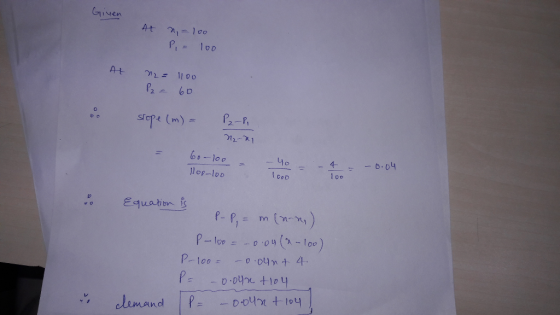 Given
At x₁ = 100
P₁ = 100
At x₂ = 1100
P₂ = 60
∴ slope (m) = P₂-P₁ / x₂-x₁
= 60-100 / 1100-100 = -40 / 1000 = -4 / 100 = -0.04
∴ Equation is
P-P₁ = m (x-x₁)
P-100 = -0.04 (x-100)
P-100 = -0.04x + 4
P = -0.04x + 104
∴ demand P = -0.04x + 104